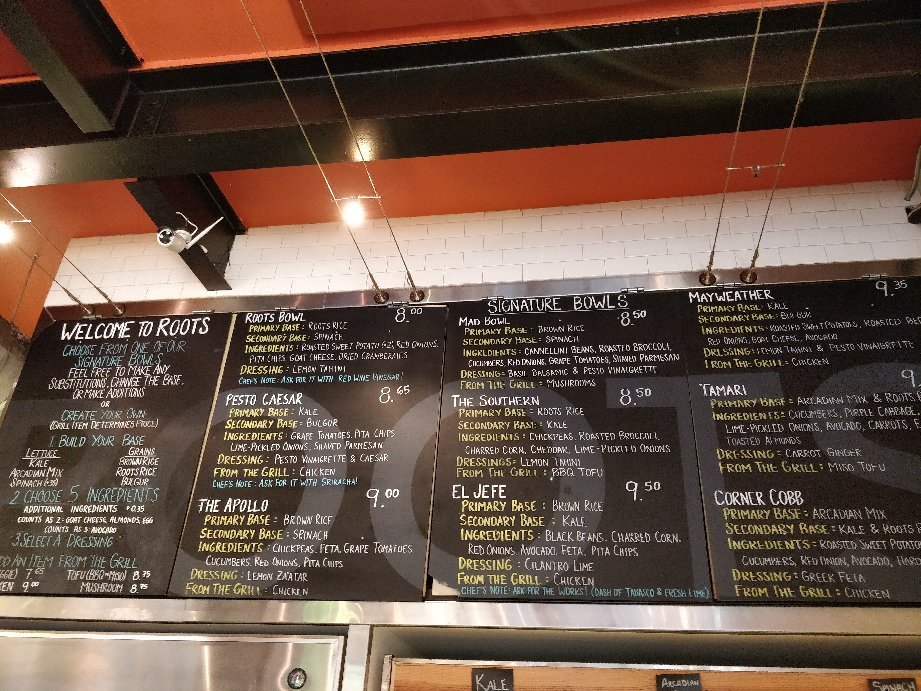 WELCOME TO ROOTS
CHOOSE FROM ONE OF OUR
SIGNATURE BOWLS
FEEL FREE TO MAKE ANY
SUBSTITUTIONS, CHANGE THE BASE,
OR MAKE ADDITIONS
OR
CREATE YOUR OWN
(GRILL ITEM DETERMINES PRICE)
1. BUILD YOUR BASE
LETTUCE GRAINS
KALE BROWN RICE
ARCADIAN MIX ROOTS RICE
SPINACH BULGUR
2. CHOOSE 5 INGREDIENTS
ADDITIONAL INGREDIENTS +0.35
COUNTS AS 2 - GOAT CHEESE, ALMONDS, EGG
COUNTS AS 3 - AVOCADO
3. SELECT A DRESSING
ADD AN ITEM FROM THE GRILL
7.65 TOFU (BBQ OR MISO) 8.75
9.00 MUSHROOM 8.75
ROOTS BOWL 8.00
PRIMARY BASE: ROOTS RICE
SECONDARY BASE: SPINACH
INGREDIENTS: ROASTED SWEET POTATOES, RED ONIONS
PITA CHIPS, GOAT CHEESE, DRIED CRANBERRIES
DRESSING: LEMON TAHINI
CHEF'S NOTE: ASK FOR IT WITH RED WINE VINEGAR!
PESTO CAESAR 8.65
PRIMARY BASE: KALE
SECONDARY BASE: BULGUR
INGREDIENTS: GRAPE TOMATOES, PITA CHIPS
LIME-PICKLED ONIONS, SHAVED PARMESAN
DRESSING: PESTO VINAIGRETTE & CAESAR
FROM THE GRILL: CHICKEN
CHEF'S NOTE: ASK FOR IT WITH SRIRACHA!
THE APOLLO 9.00
PRIMARY BASE: BROWN RICE
SECONDARY BASE: SPINACH
INGREDIENTS: CHICKPEAS, FETA, GRAPE TOMATOES
CUCUMBERS, RED ONIONS, PITA CHIPS
DRESSING: LEMON ZA'ATAR
FROM THE GRILL: CHICKEN
SIGNATURE BOWLS
MAD BOWL 8.50
PRIMARY BASE: BROWN RICE
SECONDARY BASE: SPINACH
INGREDIENTS: CANNELLINI BEANS, ROASTED BROCCOLI,
CUCUMBERS, RED ONIONS, GRAPE TOMATOES, SHAVED PARMESAN
DRESSING: BASIL BALSAMIC & PESTO VINAIGRETTE
FROM THE GRILL: MUSHROOMS
THE SOUTHERN 8.50
PRIMARY BASE: ROOTS RICE
SECONDARY BASE: KALE
INGREDIENTS: CHICKPEAS, ROASTED BROCCOLI
CHARRED CORN, CHEDDAR, LIME-PICKLED ONIONS
DRESSINGS: LEMON TAHINI
FROM THE GRILL: BBQ TOFU
EL JEFE 9.50
PRIMARY BASE: BROWN RICE
SECONDARY BASE: KALE
INGREDIENTS: BLACK BEANS, CHARRED CORN,
RED ONIONS, AVOCADO, FETA, PITA CHIPS
DRESSING: CILANTRO LIME
FROM THE GRILL: CHICKEN
CHEF'S NOTE: ASK FOR THE WORKS! (DASH OF TABASCO & FRESH LIME)
MAYWEATHER 9.35
PRIMARY BASE: KALE
SECONDARY BASE: BULGUR
INGREDIENTS: ROASTED SWEET POTATOES, ROASTED
RED ONIONS, GOAT CHEESE, AVOCADO
DRESSING: LEMON TAHINI & PESTO VINAIGRETTE
FROM THE GRILL: CHICKEN
TAMARI 9
PRIMARY BASE: ARCADIAN MIX & ROOTS
INGREDIENTS: CUCUMBERS, PURPLE CABBAGE,
LIME-PICKLED ONIONS, AVOCADO, CARROTS,
TOASTED ALMONDS
DRESSING: CARROT GINGER
FROM THE GRILL: MISO TOFU
CORNER COBB
PRIMARY BASE: ARCADIAN MIX
SECONDARY BASE: KALE & ROOTS
INGREDIENTS: ROASTED SWEET POTATO
CUCUMBERS, RED ONION, AVOCADO,
DRESSING: GREEK FETA
FROM THE GRILL: CHICKEN
KALE
ARCADIAN
SPINACH